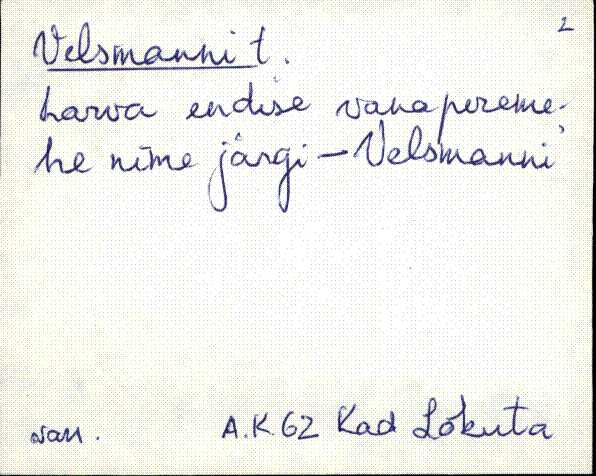 2
Velsmanni t.
harva endise vanapereme-
he nime järgi – Velsmanni
van. A.K. 62 Kad Lõkuta